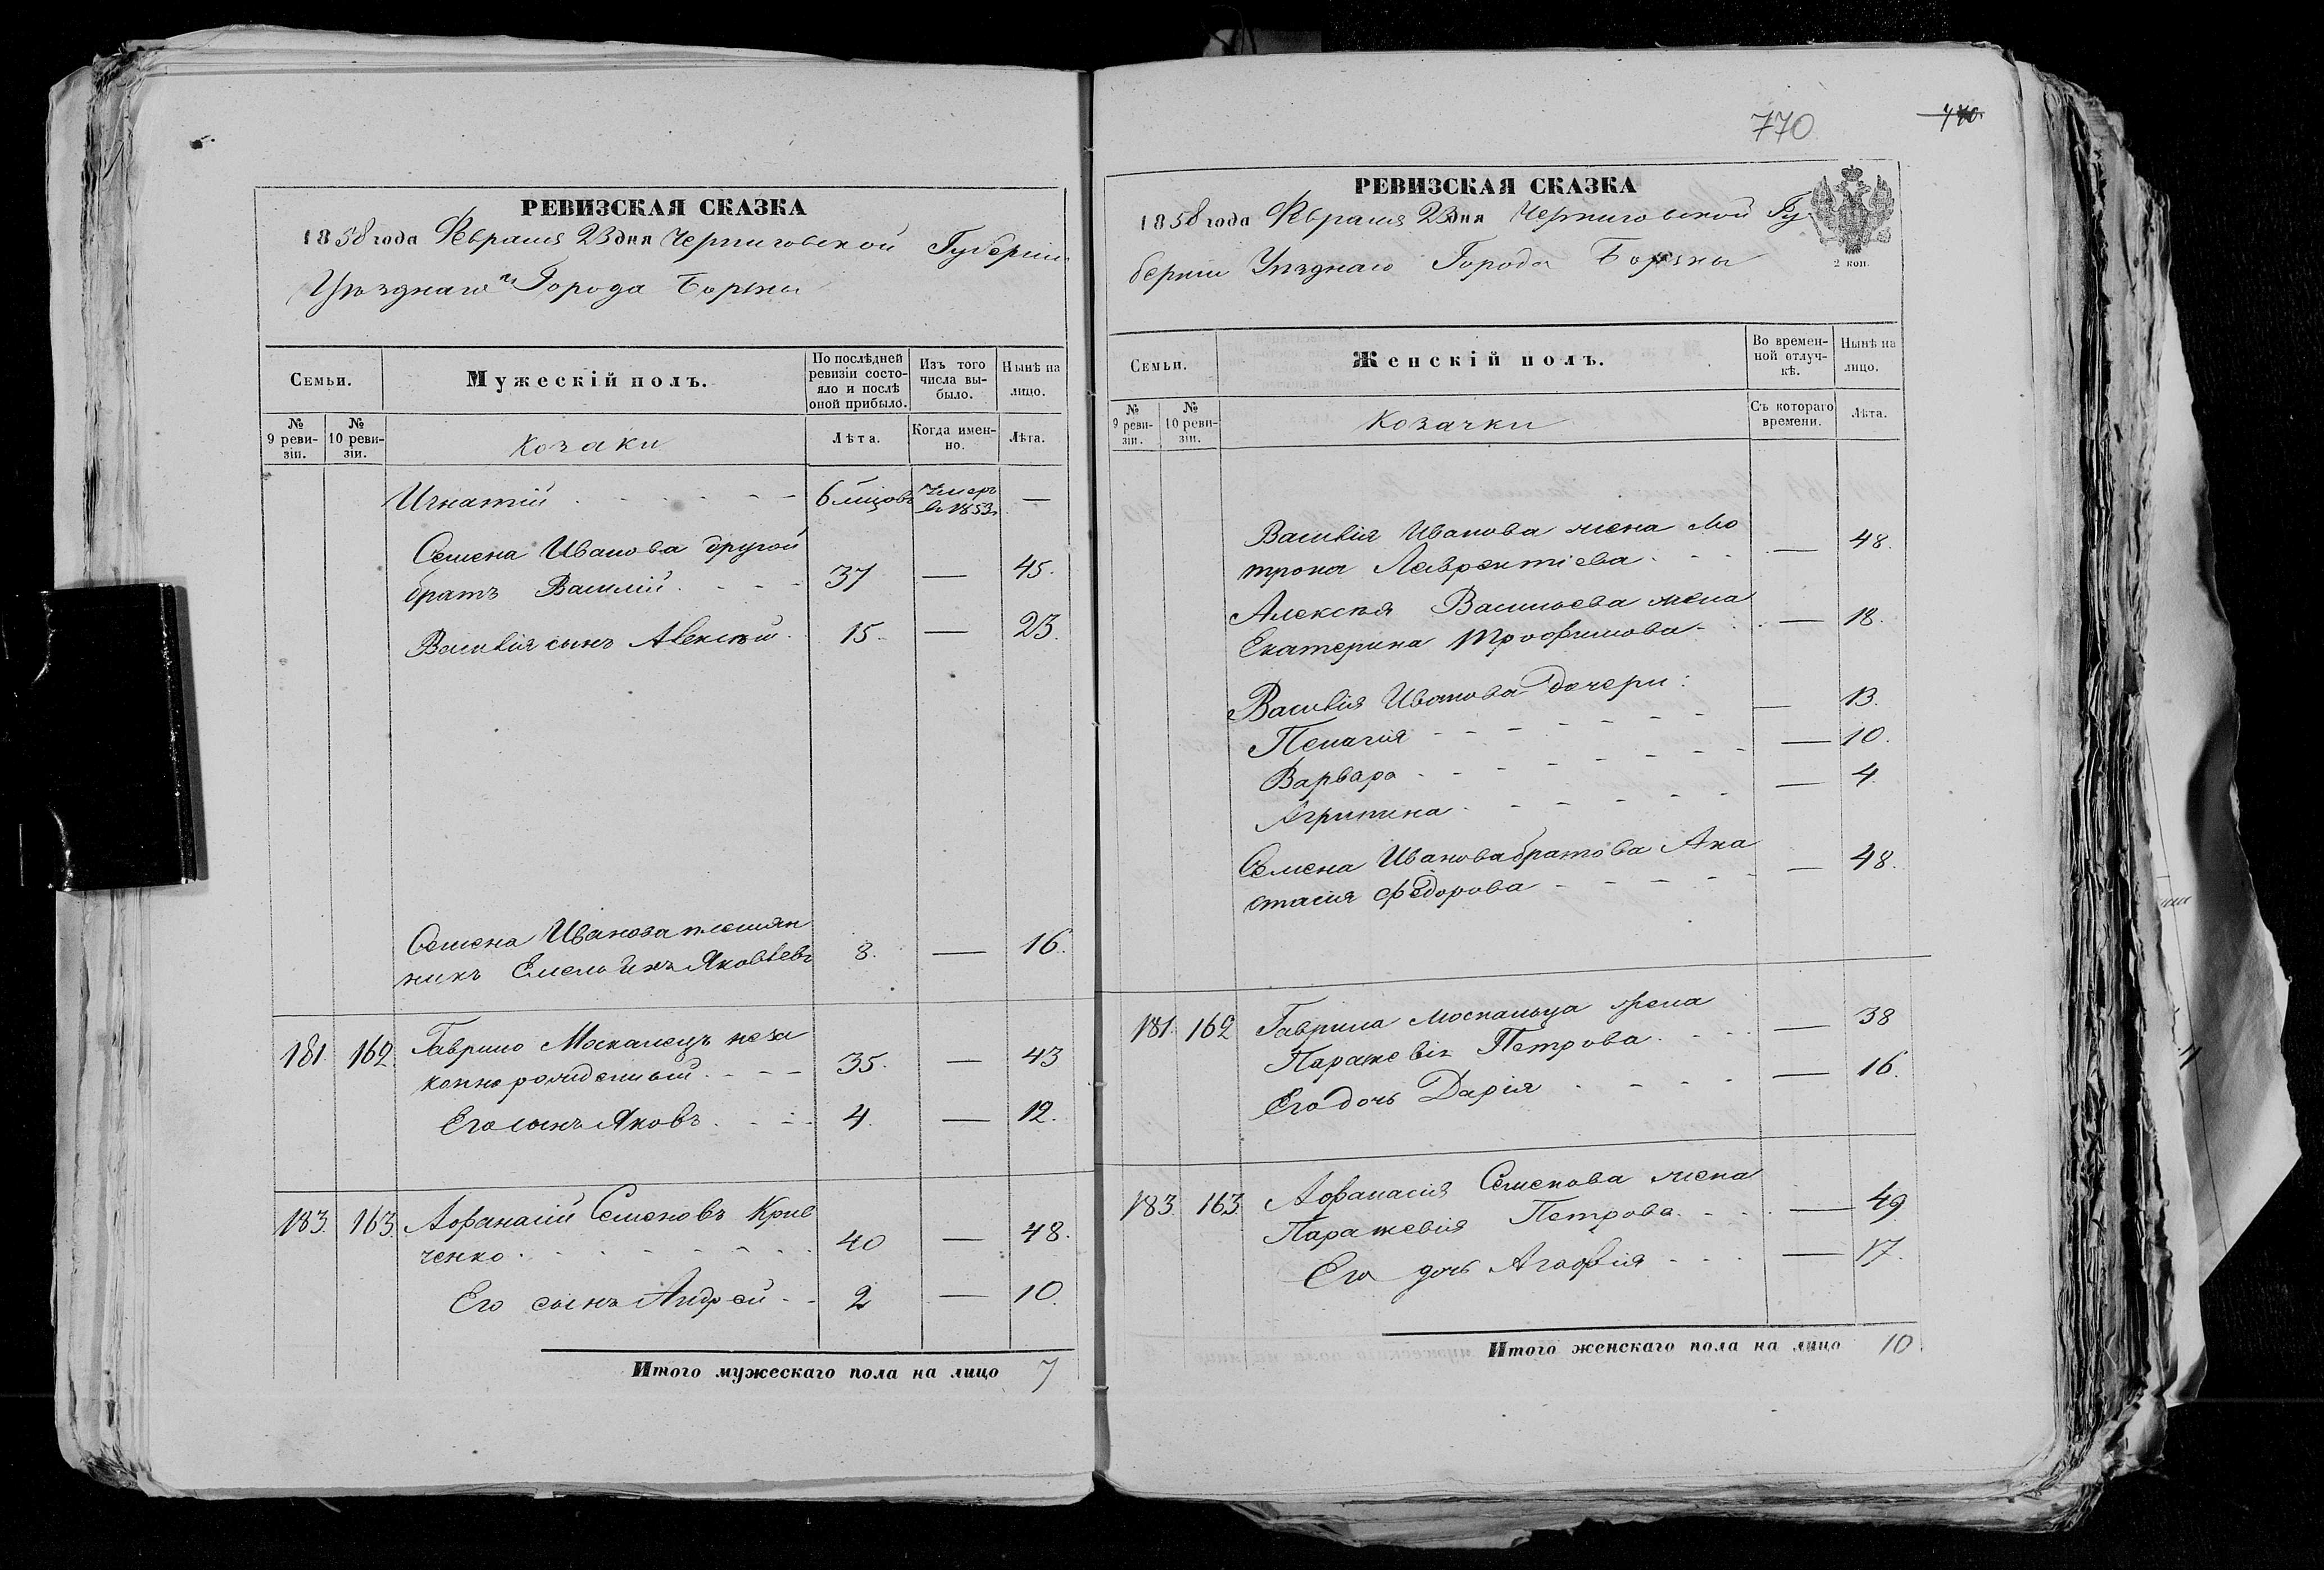 РЕВИЗСКАЯ СКАЗКА
1858 года Февраля 23 дня Черниговской Губерніи
Уѣзднаго Города Борзны
Семьи.
Мужескій полъ.
По послѣдней ревизіи состояло и послѣ оной прибыло.
Изъ того числа выбыло.
Нынѣ на лицо.
№ 9 ревизіи.
№ 10 ревизіи.
Козаки
Лѣта.
Когда именно.
Лѣта.
Игнатій 6 мѣсцовъ умеръ въ 1853 —
Семена Иванова другой
братъ Василій 37 — 45.
Василія сынъ Алексѣй 15 — 23.
Семена Иванова племян
никъ Емельянъ Яковлевъ 8. — 16.
181. 162. Гаврило Москалецъ неза
коннорожденный 35. — 43
Его сынъ Яковъ 4. — 12.
183. 163. Афанасій Семеновъ Крив
ченко 40 — 48.
Его сынъ Андрей 2 — 10.
Итого мужескаго пола на лицо 7
770
РЕВИЗСКАЯ СКАЗКА
1858 года Февраля 23 дня Черниговской Гу
берніи Уѣзднаго Города Борзны
2 коп.
Семьи.
Женскій полъ.
Во временной отлучкѣ.
Нынѣ на лицо.
№ 9 ревизіи.
№ 10 ревизіи.
Козачки
Съ котораго времени.
Лѣта.
Василія Иванова жена Мо
трона Лаврентіева — 48.
Алексѣя Васильева жена
Екатерина Трофимова — 18.
Василія Иванова дочери:
Пелагія — 13.
Варвара — 10.
Агрипина — 4.
Семена Иванова братова Ана
стасія Федорова — 48.
181. 162 Гаврила Москальца жена
Паражевія Петрова — 38
Его дочь Дарія — 16.
183. 163 Афанасія Семенова жена
Паражевія Петрова — 49
Его дочь Агафія — 17.
Итого женскаго пола на лицо 10.